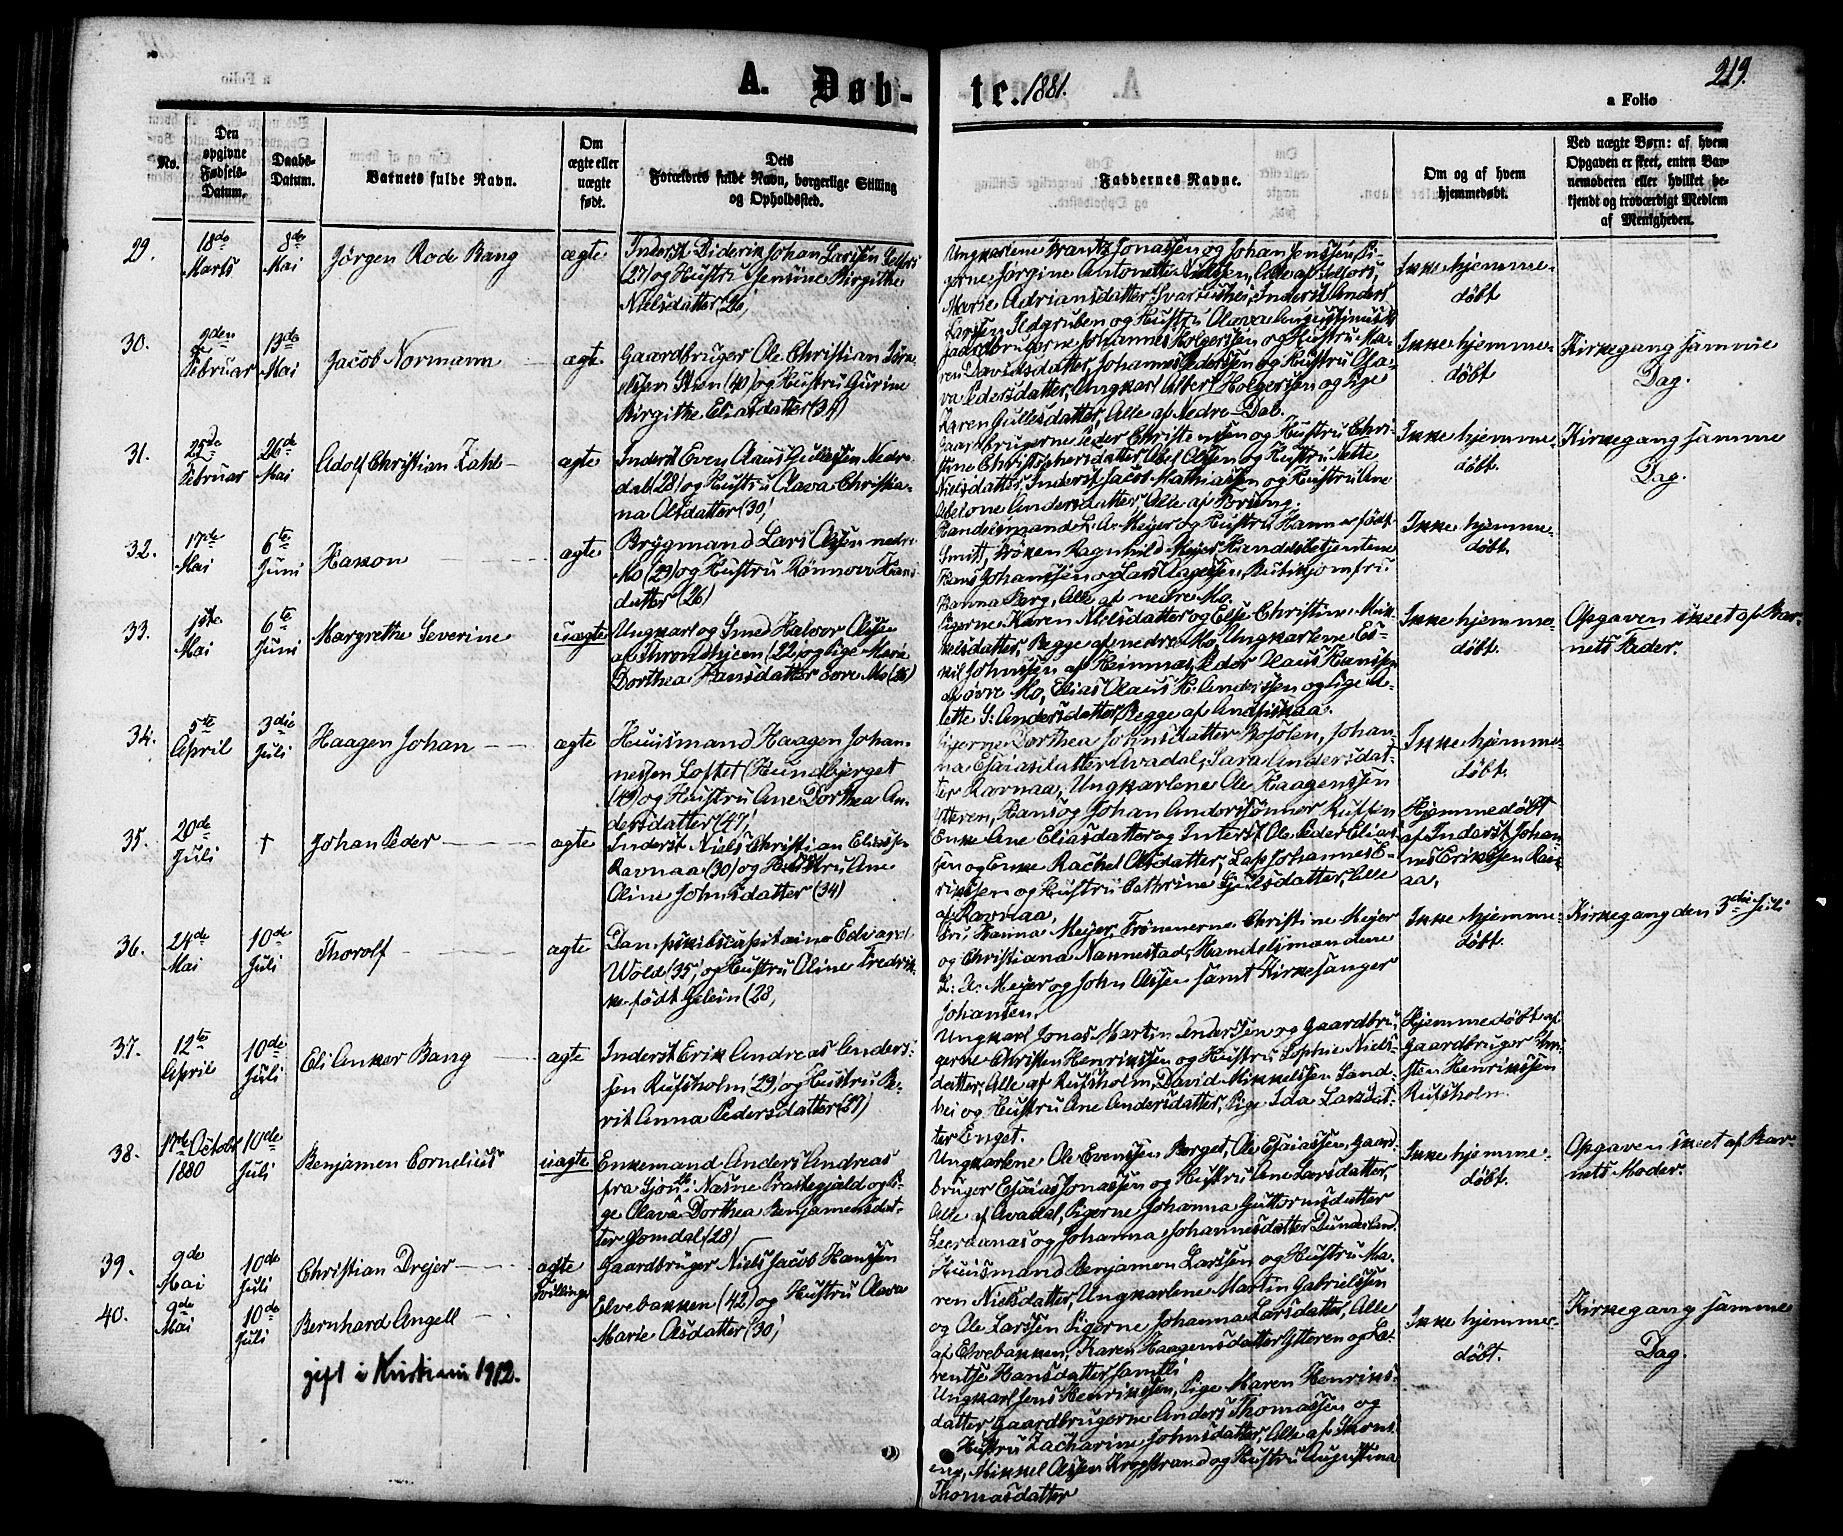 A. Døb-
te. 1881.
219.
a Folio
No.
Den
opgivne
Fødsels-
Datum.
Daabs-
Datum.
Barnets fulde Navn.
Om
ægte eller
uægte
født.
Dets
Forældres fulde Navn, borgerlige Stilling
og Opholdssted.
Faddernes Navne.
Om og af hvem
hjemmedøbt.
Ved uægte Børn: af hvem
Opgaven er skeet, enten Bar-
nemoderen eller hvilket be-
kjendt og troværdigt Medlem
af Menigheden.
29.
18de
Marts
8de
Mai
Jørgen Rode Bang
ægte
Inderst Diderik Johan Larssen
(27) og Hustru Jensine Birgithe
Nielsdatter (26)
Ungkarlene Frantz Jonassen og Johan Jenssen, Pi-
gerne Jørgine Antonette Nilssen, Alle af
Marie Adriansdatter Svartishei, Inderst Anders
Larssen Ildgruben og Hustru Olava
Ikke hjemme-
døbt
30.
9den
Februar
13de
Mai
Jacob Normann
ægte
Gaardbruger Ole Christian Jørn-
(40) og Hustru Gurine
Birgithe Eliasdatter (34)
Gaardbrugerne Johannes Holgerssen og Hustru Ma-
ren Davidsdatter, Johannes Pederssen og Hustru Ola-
va Pedersdatter, Ungkarl Albert Holgersen og Pige
Karen Gullesdatter, Alle af Nedre-Dal.
Ikke hjemme-
døbt
Kirkegang samme
Dag.
31.
25de
Februar
26de
Mai
Adolf Christian Zahl
ægte
Inderst Even Olaus Gullessen Nedre-
dal (28) og Hustru Olava Christia-
na Olsdatter (30)
Gaardbrugerne Peder Christensen og Hustru Chri-
stine Christophersdatter, Abel Olssen og Hustru Nette
Nielsdatter, Inderst Jacob Mathiassen og Hustru Ane
Abelone Andersdatter, Alle af Forseng.
Ikke hjemme-
døbt.
Kirkegang samme
Dag.
32.
17de
Mai
6te
Juni
Hakon
ægte
Brygmand Lars Olssen nedre
Mo (29) og Hustru Rønnov Hans-
datter (26)
Handelsmand L. A. Meyer og Hustru Hanna født
Smitt, Frøken Ragnhild Meyer, Handelsbetjentene
Hans Johanssen og Lars Aagessen, Butikjomfru
Hanna Berg, Alle af nedre Mo.
Ikke hjemme-
døbt.
33.
1ste
Mai
6te
Juni
Margrethe Severine
uægte
Ungkarl og Smed Halvor Olssen
af Throndhjem (22) og Pige Maria
Dorthea Hansdatter øvre Mo (26)
Pigerne Karen Nielsdatter og Else Christine Mik-
kelsdatter, Begge af nedre Mo, Ungkarlene Es-
kil Johnssen af Heimnæs, Peder Olaus Hanssen
af øvre Mo, Elias Olaus H. Andersen og Pige A-
lette S. Andersdatter, Begge af Andfiskaa.
Ikke hjemme-
døbt.
Opgaven skeet af Bar-
nets Fader.
34.
5te
April
3die
Juli
Haagen Johan
ægte
Huusmand Haagen Johan-
nessen Loftet (Hundbjerget
(49) og Hustru Ane Dorthea An-
dersdatter (47)
Pigerne Dorthea Johnsdatter Bosolen, Johan-
na Esaiasdatter Avadal, Sara Andersdat-
ter Ravnaa, Ungkarlene Ole Haagenssen
Ytteren, Hans og Johan Anderssønner Kuffen
Ikke hjemme-
døbt.
35.
20de
Juli
†
Johan Peder
ægte
Inderst Niels Christian Eliassen
Ravnaa (30) og Hustru Ane
Oline Johnsdatter (34)
Enke Ane Eliasdatter og Inderst Ole Peder Elias-
sen og Enke Rachel Olsdatter, Lap Johannes E-
rikssen og Hustru Cathrine Sjulsdatter, Alle
af Ravnaa.
Hjemmedøbt
af Inderst Johan-
nes Erikssen Ravn-
aa.
36.
24de
Mai
10de
Juli
Thorolf
ægte
Dampskibscapitaine Edvard
Wold (35) og Hustru Oline Fredrik-
ke født Gelein (28)
Fru Hanna Meyer, Frøknerne Christine Meyer
og Christiana Nannestad, Handelsmændene
L. A. Meyer og John Olssen samt Kirkesanger
Johansen.
Ikke hjemme-
døbt.
Kirkegang den 3die Juli
37.
12te
April
10de
Juli
Eli Anker Bang
ægte
Inderst Erik Andreas Anders-
sen Rufsholm (29) og Hustru Be-
rit Anna Pedersdatter (27)
Ungkarl Jonas Martin Anderssen og Gaardbru-
gerne Christen Henrikssen og Hustru Sophie Niels-
datter, Alle af Rufsholm, David Mikkelssen Sand-
hei og Hustru Ane Andersdatter, Pige Ida Larsdat-
ter Enget.
Hjemmedøbt af
Gaardbruger Chri-
sten Henrikssen
Rufsholm.
38.
17de Octobr
1880
10de
Juli
Benjamen Cornelius
uægte
Enkemand Anders Andreas
fra Sjona: Næsne Præstegjæld og Pi-
ge Olava Dorthea Benjamensdat-
ter Gomdal (28)
Ungkarlene Ole Evenssen Berget, Ole Esaiassen, Gaard-
bruger Esaias Jonassen og Hustru Ane Larsdatter,
Alle af Avadal, Pigerne Johanna Guttormsdatter
og Johanna Johannesdatter Dunderland.
Ikke hjemme-
døbt.
Opgaven skeet af Bar-
nets Moder.
39.
9de
Mai
10de
Juli
Christian Drejer
ægte
Tvillinge
Gaardbruger Niels Jacob Hanssen
Elvebakken (42) og Hustru Olava
Marie Olsdatter (30)
Huusmand Benjamen Larssen og Hustru Ma-
ren Nielsdatter, Ungkarlene Martin Gabrielssen
og Ole Larssen, Pigerne Johanna Larsdatter, Alle
af Elvebakken, Karen Haagensdatter Ytteren og La-
rentse Hansdatter
40.
9de
Mai
10de
Juli
Bernhard Angell
gift i Kristiania 1912.
Ungkarl Jens Henrikssen, Pige Maren Henriks-
datter, Gaardbrugerne Anders Thomassen og
Hustru Zacharine Johnsdatter, Alle af Skons-
eng, Mikkel Olssen Krogstrand og Hustru Augustina
Thomasdatter
Ikke hjemme-
døbt.
Kirkegang samme
Dag.